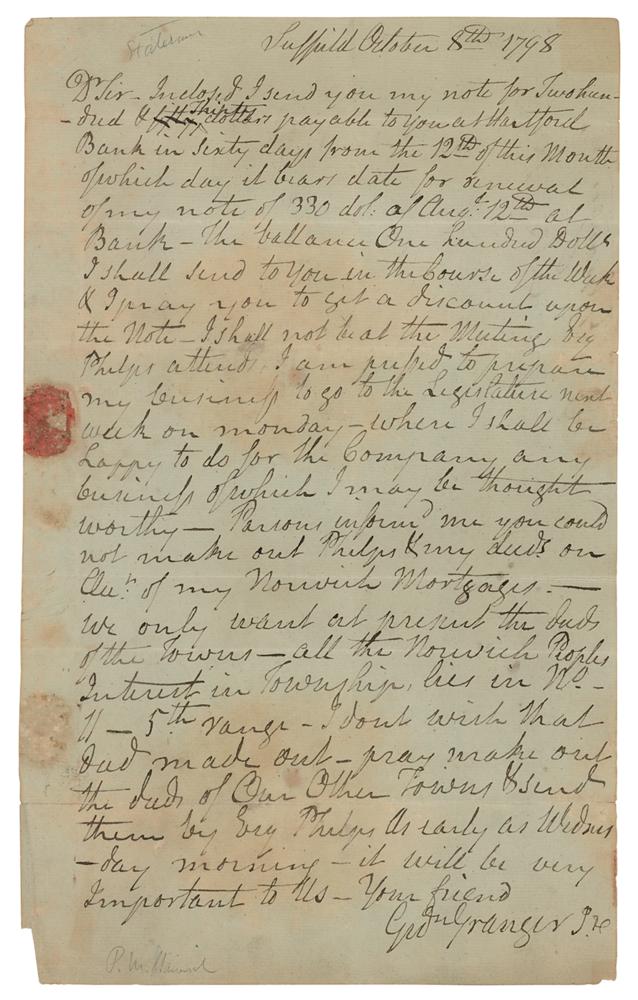 Statesman
Suffield October 8th 1798
Dr Sir - Inclosed I send you my note for Two hun-
-dred & fifty thirty dollars payable to you at Hartford
Bank in Sixty days from the 12th of this Month
of which day it bears date for renewal
of my note of 330 dol: of Augt 12th at
Bank - The ballance One hundred Dolls
I shall send to you in the Course of the Week
& I pray you to get a discount upon
the Note - I shall not be at the Meeting Esq
Phelps attends I am pressed to prepare
my business to go to the Legislature next
week on monday - where I shall be
happy to do for the Company any
business of which I may be thought
worthy - Parsons inform'd me you could
not make out Phelps & my deeds on
of my Norwich Mortgages. -
we only want at present the deeds
of the Towns - all the Norwich Peoples
Interest in Township, lies in No -
11 - 5th range - I dont wish that
deed made out - pray make out
the deeds of Our Other Towns & send
them by Esq Phelps As early as Wednes
-day morning - it will be very
Important to Us - Your friend
Gidn Granger Jr
P. M.